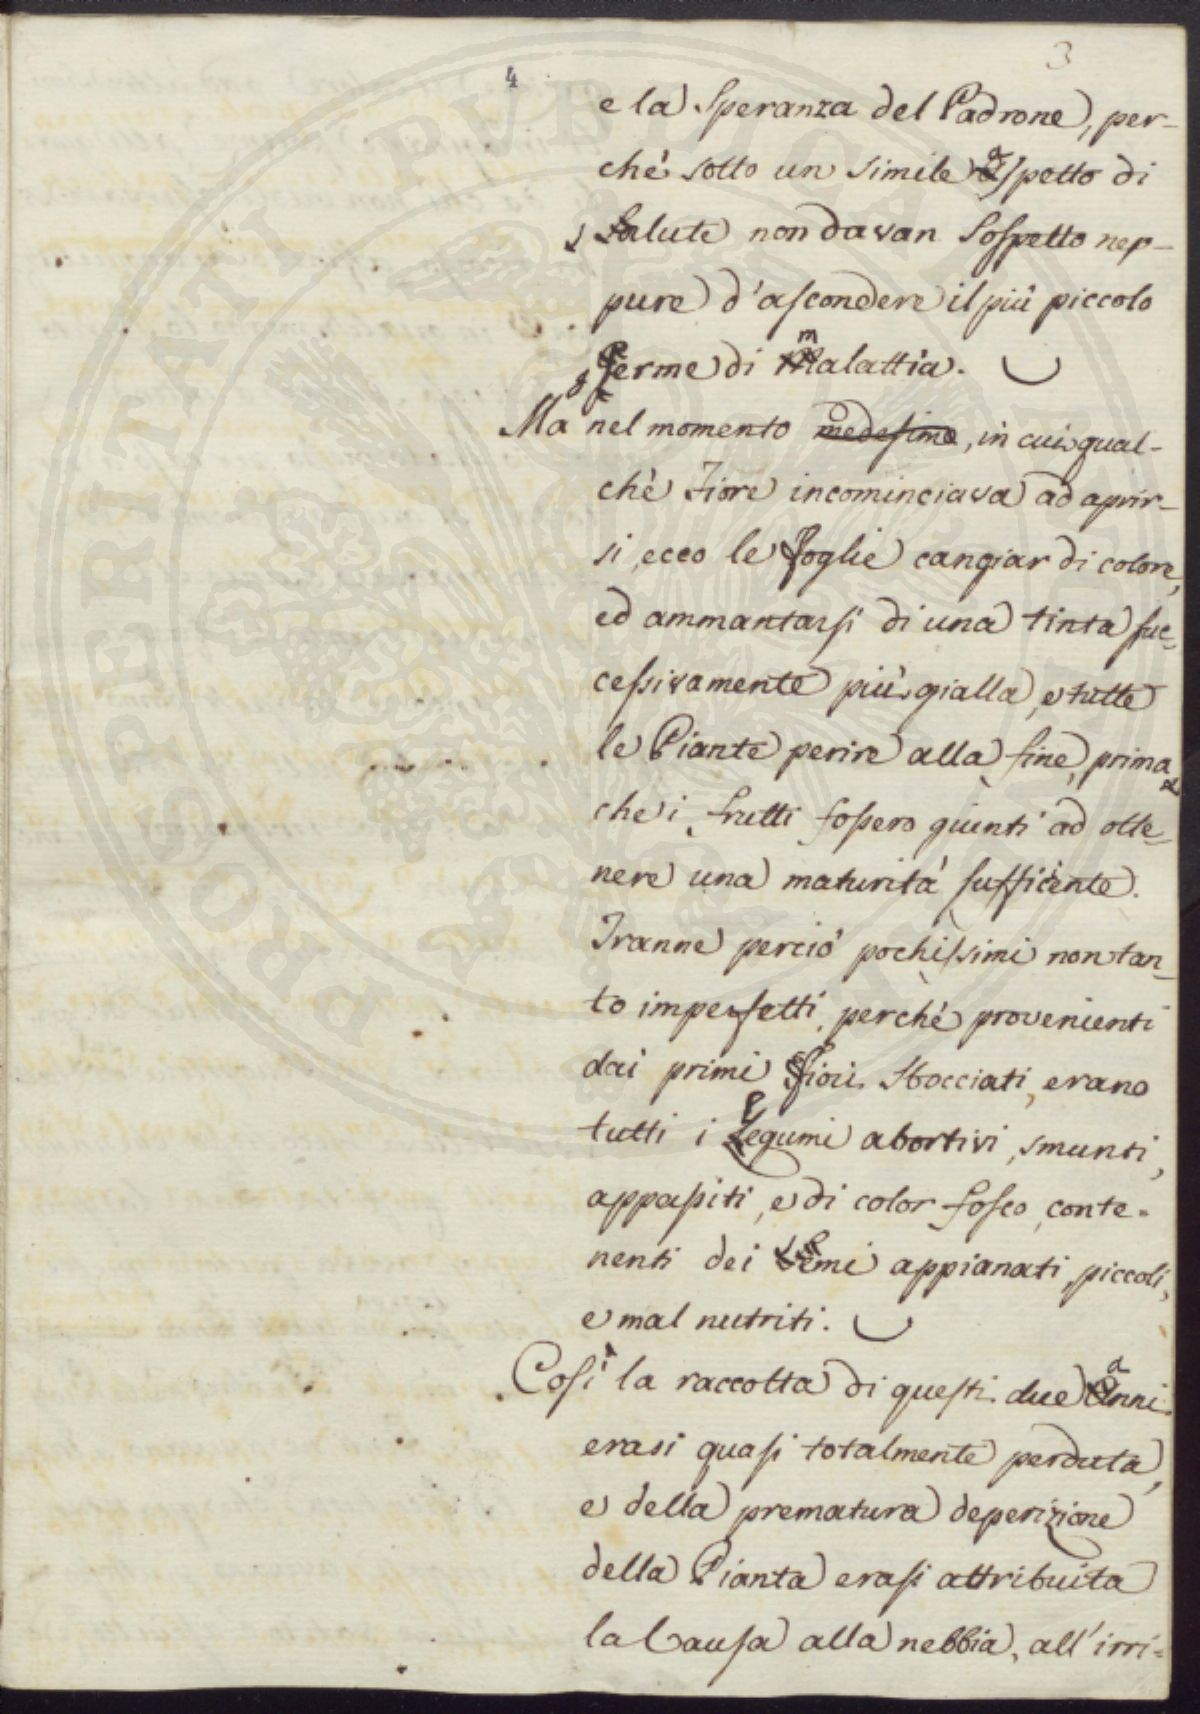 4 3
e la Speranza del Padrone, per-
chè sotto un simile aspetto di
salute non davan Sospetto nep-
pure d'ascondere il più piccolo
germe di malattia.
Ma nel momento medesimo, in cui qual-
chè Fiore incominciava ad aprir-
si, ecco le foglie cangiar di colore,
ed ammantarsi di una tinta suc-
cessivamente più gialla, e tutte
le Piante perire alla fine, prima
che i frutti fossero giunti ad otte-
nere una maturità sufficiente.
Tranne perciò pochissimi non tan-
to imperfetti, perchè provenienti
dai primi fiori sbocciati, erano
tutti i legumi abortivi, smunti,
appassiti, e di color fosco, conte-
nenti dei semi appianati, piccoli,
e mal nutriti.
Così la raccolta di questi due anni
erasi quasi totalmente perduta,
e della prematura deperizione
della Pianta erasi attribuita
la Causa alla nebbia, all'irri-
PROSPERITATI PVBLICAE